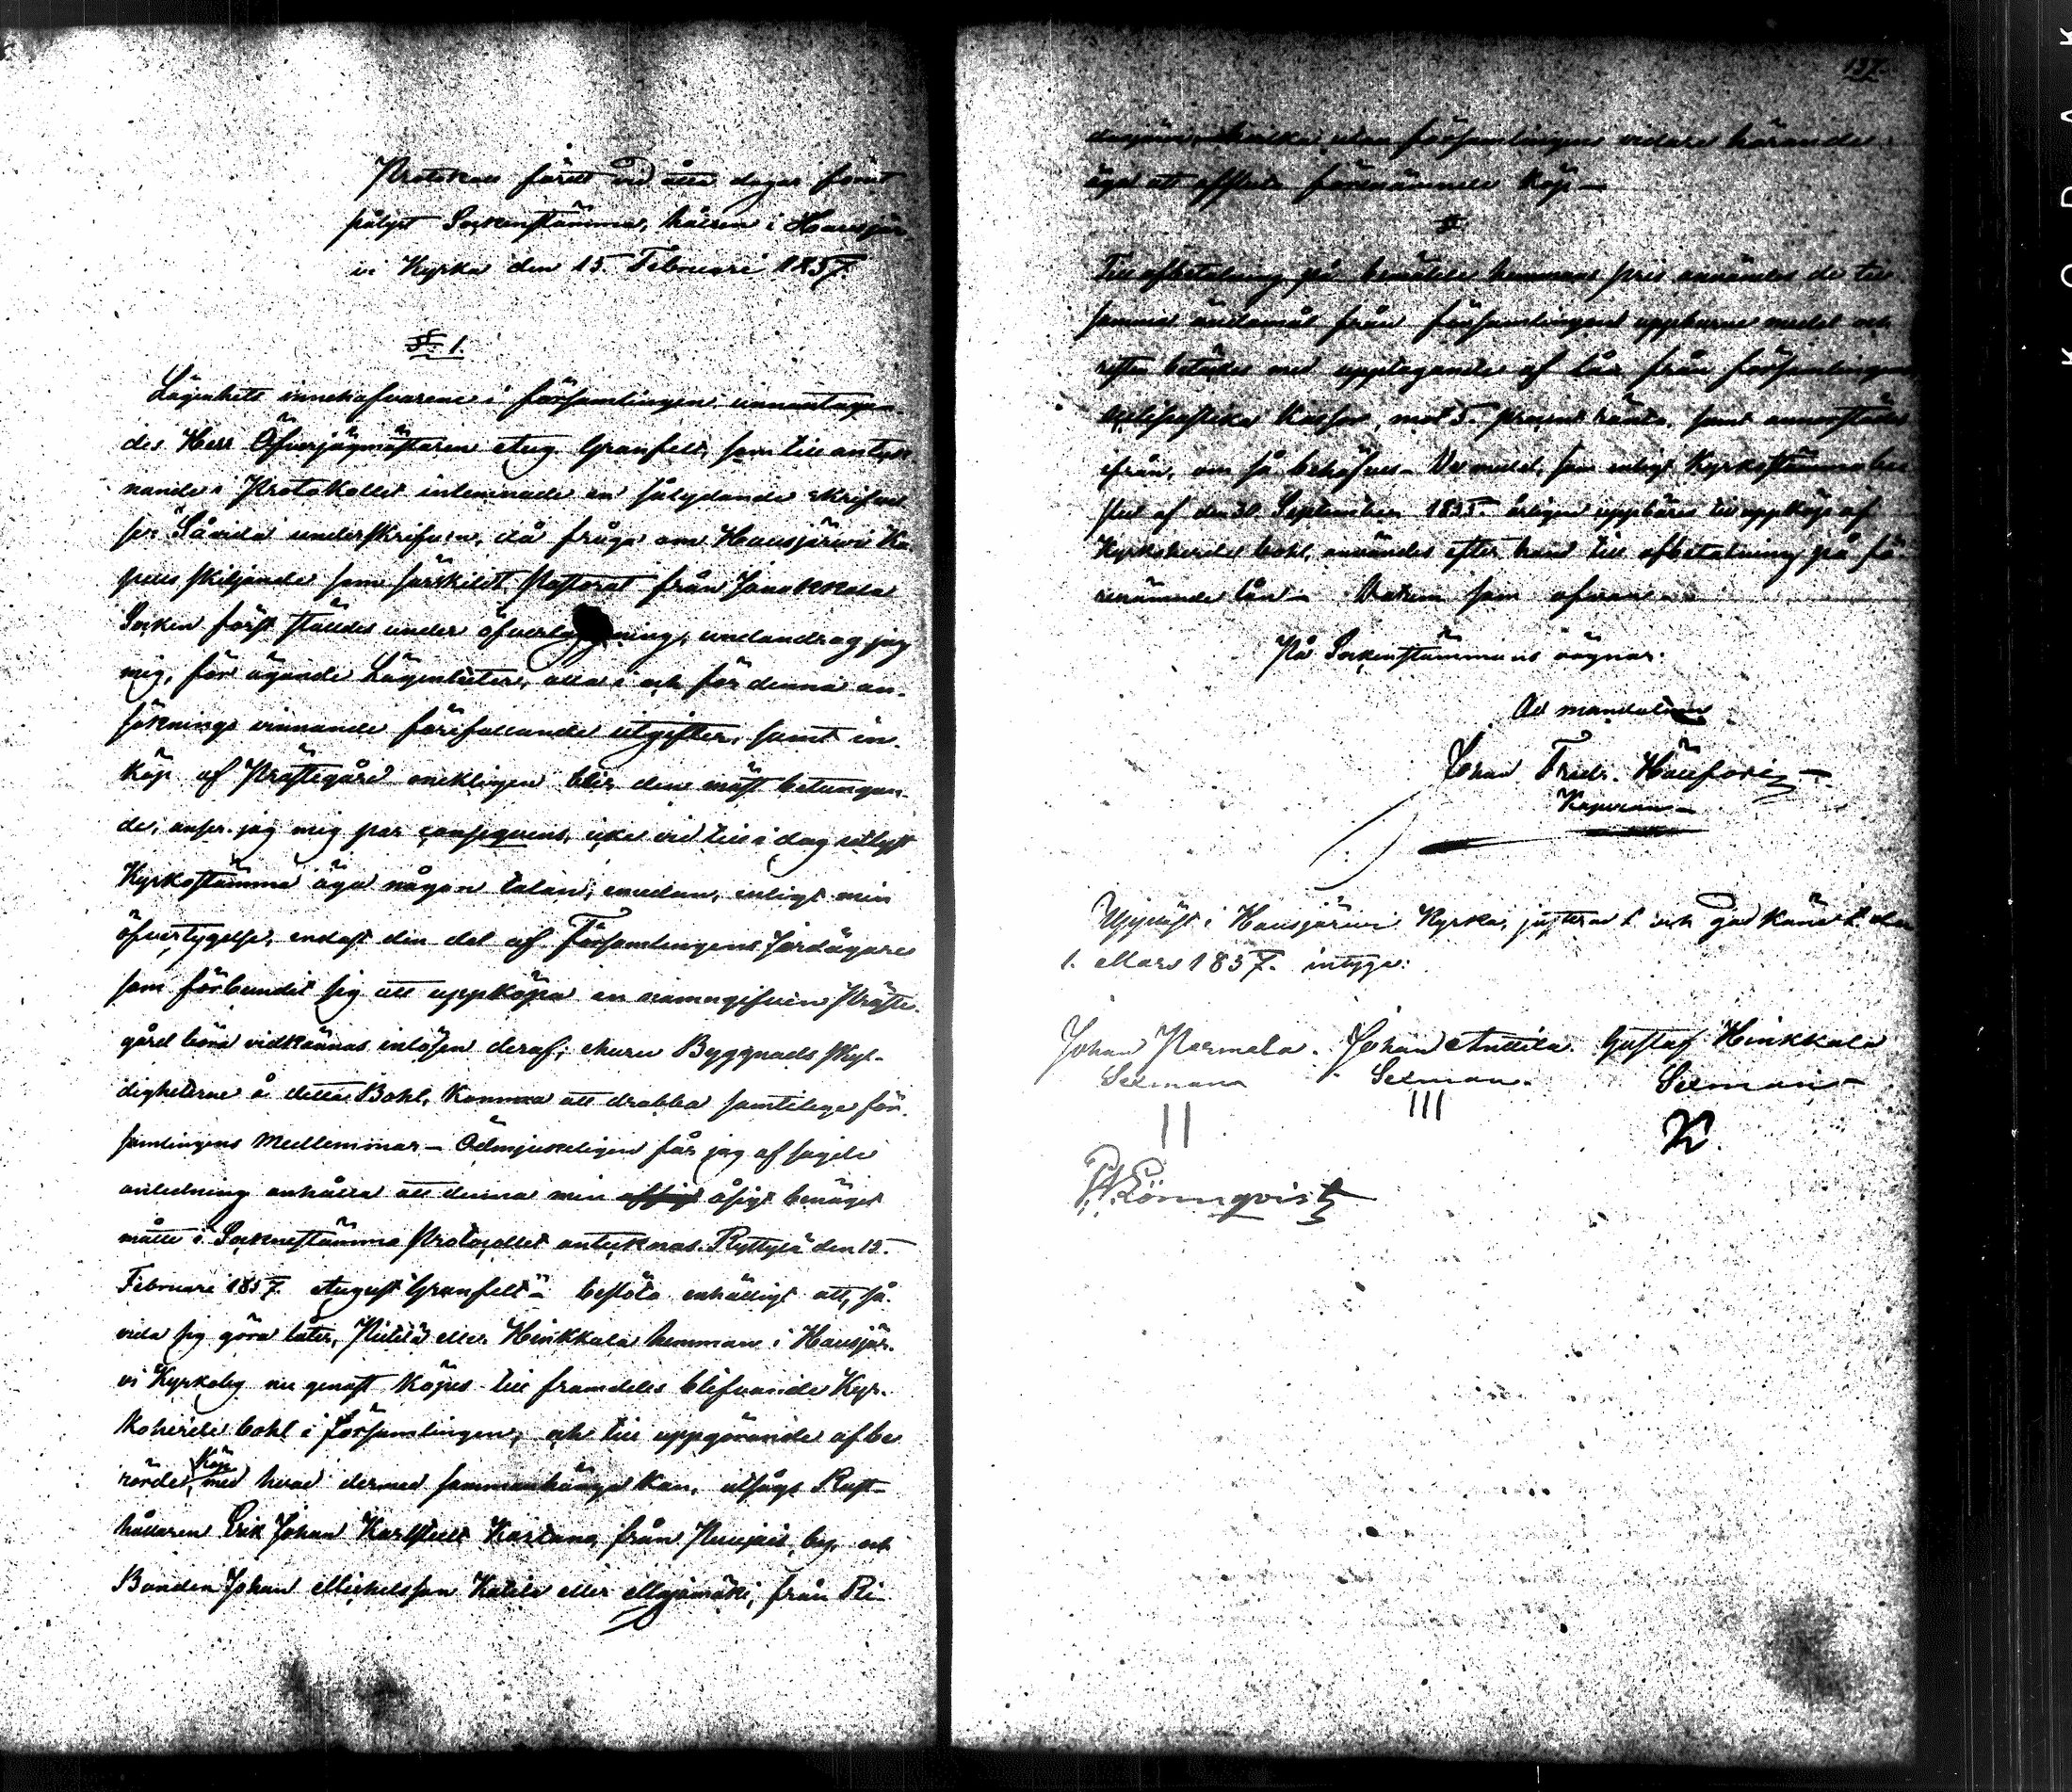 Protokoll fördt vid åtta dagar förut
pålyst Sockenstämma, hållen i Hausjär-
vi Kyrka den 15. Februari 1857.
§ 1.
Lägenhets innehafvarene i församlingen, undantagan-
des Herr Öfverjägmästaren Aug. Granfelt, som till anteck-
nande i Protokollet inlemnade en sålydande skrifvel-
se: "Såvida underskrifven, då fråga om Hausjärvi Ka-
pells skiljande som särskildt Pastorat från Janakkala
Socken först ställdes under öfverläggning, undandrog jag
mig, för ägande Lägenheter, alla i och för denna an-
söknings vinnande förefallande utgifter, samt in-
köp af Prästegård verkligen blir den mäst betungan-
de, anser jag mig par consequens, icke vid till i dag utlyst
Kyrkostämma äga någon talan; emedan, enligt min
öfvertygelse, endast den del af Församlingens Jordägare
som förbundit sig att uppköpa en Präste-
gård böra vidkännas inlösen deraf; churu Byggnads skyl-
digheterne å detta Bohl, komma att drabba samtelige för-
samlingens Medlemmar – Ödmjukeligen får jag af sagde
anledning anhålla att denna min åsigt benäget
måtte i Sockenstämmo Protocollet antecknas. Ryttylä den 15.
Februari 1857. August Granfelt" – beslöto enhälligt att, så-
vida sig göra låter, Pietilä eller Hinkkala hemman i Hausjär-
vi Kyrkoby nu genast köpes till framdeles blifvande Kyr-
koherde bohl i församlingen, och till uppgörande af be-
Köp
rörde, med hvad dermed sammanhänga kan, utsågs Rust-
hållaren Erik Johan Karlstedt Kartano, från by, och
Bonden Johan Michelsson Kalela eller Myömäki, från Ri-
137.
hvilka utan församlingens vidare hörande
äga att afsluta förenämnde köp –
§
Till afbetalning på bemälde hemmans pris användes de till
samma ändamål från församlingen uppburne medel och
resten betäcktes med upptagande af lån från församlingens
Kassor, mot 5. procent ränta, samt annorstädes
ifrån, om så behöfves – De medel, som enligt Kyrkostämmo bes-
slut af den 30 September 1855. årligen uppbäres till uppköp af
Kyrkoherde bohl, användes efter hand till afbetalning på fö-
renämnde lån – Datum som ofvan –
På Sockenstämmans vägnar:
Ad mandatum
Johan Fredr. Häufori
Kapellan –
Uppläst i Hausjärvi Kyrka, justerad t och god känd t den
1. Mars 1857. intyga:
Johan Permala. Johan Anttila. Gustaf Hinkkala
Sexman Sexman. Sexman –
II III
P. Lönnqvist